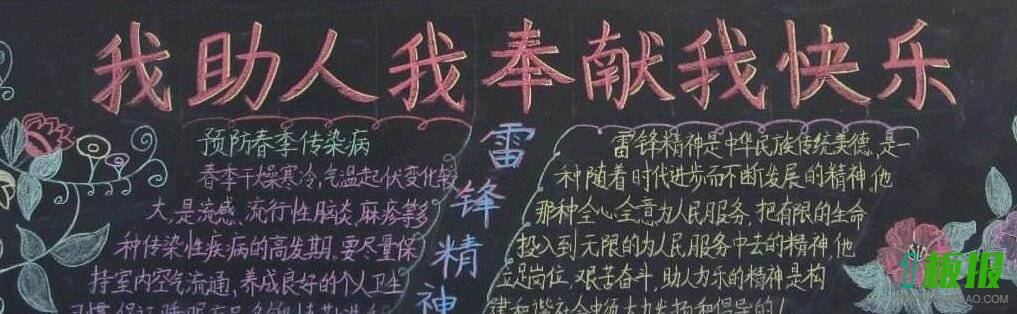 我助人我奉献我快乐
预防春季传染病
春季干燥寒冷,气温起伏变化较
大,是流感、流行性脑炎、麻疹等多
种传染性疾病的高发期。要尽量保
持室内空气流通,养成良好的个人卫生
雷锋精神
雷锋精神是中华民族传统美德,是一
种随着时代进步而不断发展的精神,他
那种全心全意为人民服务,把有限的生命
投入到无限的为人民服务中去的精神,他
立足岗位、艰苦奋斗,助人为乐的精神是构
建和谐社会中须大力发扬和倡导的!
板报
BAO.COM